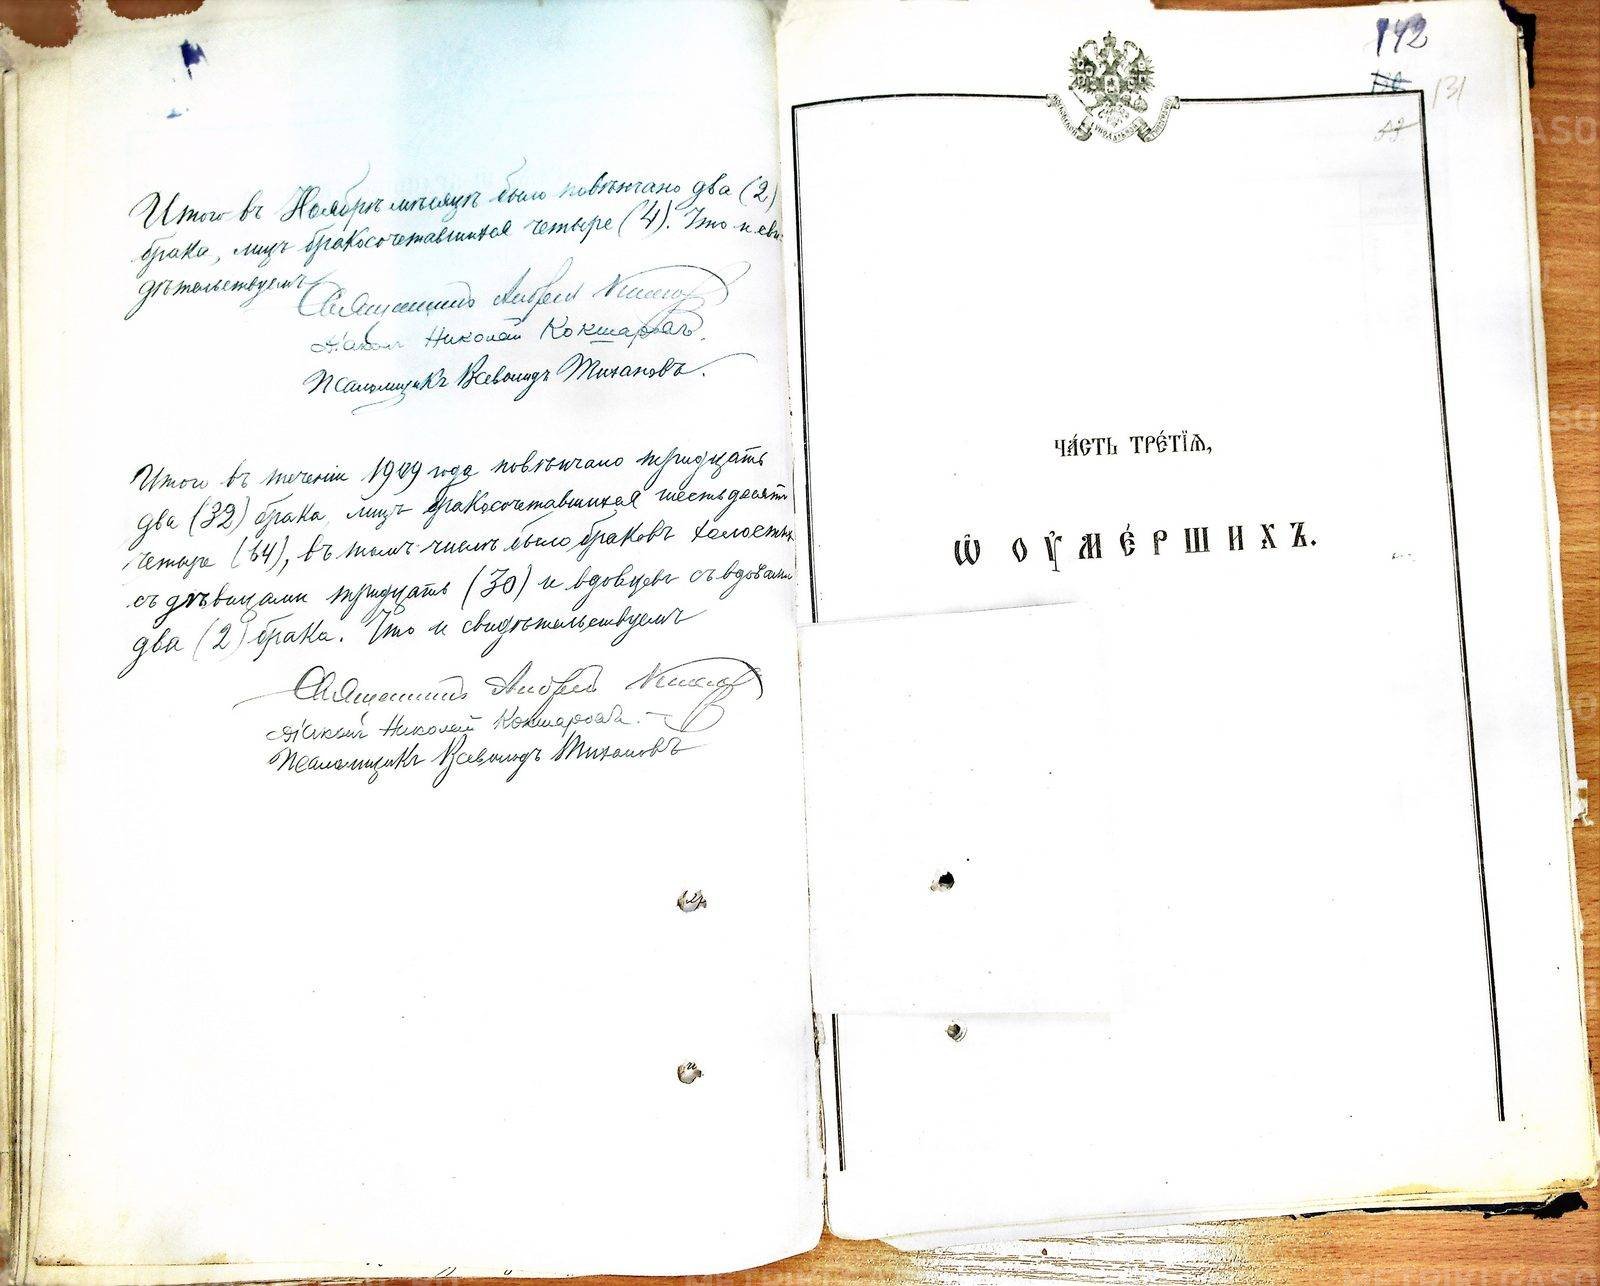 Итого въ Ноябрѣ мѣсяцѣ было повѣнчано два (2)
брака, лицъ бракосочетавшихся четыре (4). Что и сви-
дѣтельствуемъ
Священникъ Андрей
Діаконъ Николай Кокшаровъ.
Псаломщикъ Всеволодъ Тихановъ.
Итого въ теченіи 1909 года повѣнчано тридцать
два (32) брака, лицъ бракосочетавшихся шестьдесятъ
четыре (64), въ томъ числѣ было браковъ холостых
съ дѣвицами тридцать (30) и вдовцевъ съ вдовами
два (2) брака. Что и свидѣтельствуемъ
Священникъ Андрей
Діаконъ Николай Кокшаровъ.
Псаломщикъ Всеволодъ Тихановъ
142
131
ЧА́СТЬ ТРЕ́ТІѦ,
Ѡ ОУ҆МЕ́РШИХЪ.